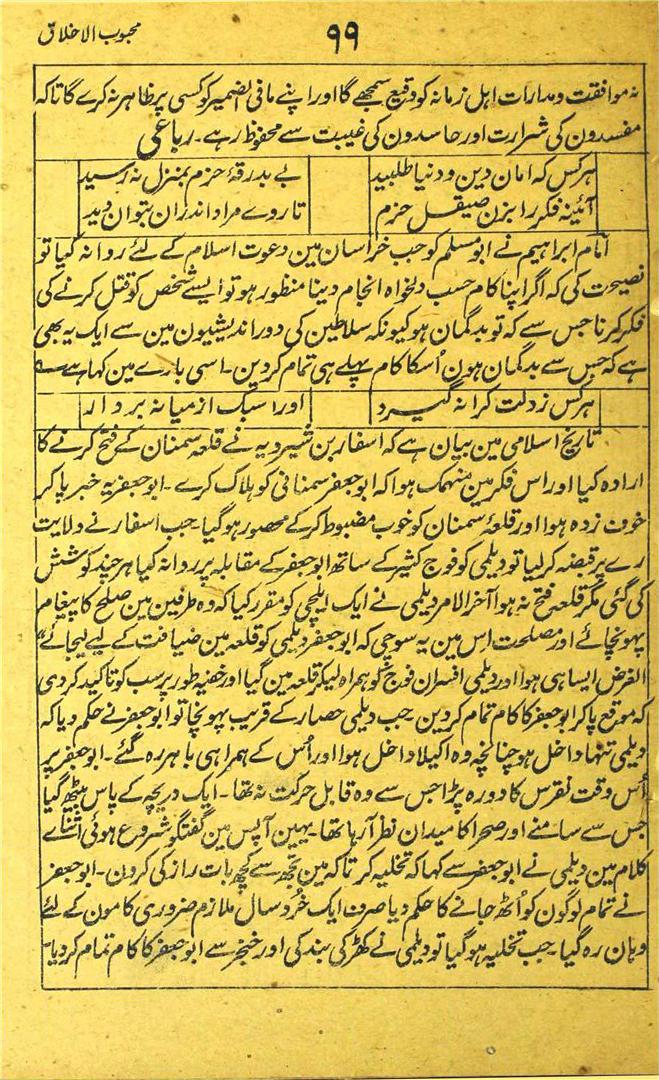 محبوب الاخلاق
۹۹
نہ موافقت و مدارات اہل زمانہ کو وقیع سمجھے گا اور اپنے مافی الضمیر کو کسی پر ظاہر نہ کرے گا تاکہ
مفسدون کی شرارت اور حاسدون کی غیبت سے محفوظ رہے۔ رباعی
ہر کس کہ امان دین و دنیا طلبید
بے بدرقۂ حزم بمنزل نہ رسید
آئینہ فکر را بزن صیقل حزم
تا روے مراد اندران بتوان دید
امام ابراہیم نے ابو مسلم کو جب خراسان مین دعوت اسلام کے لئے روانہ کیا تو
نصیحت کی کہ اگر اپنا کام حسب دلخواہ انجام دینا منظور ہو تو ایسے شخص کو قتل کرنے کی
فکر کرنا جس سے کہ تو بدگمان ہو کیونکہ سلاطین کی دور اندیشیون مین سے ایک یہ بھی
ہے کہ جس سے بدگمان ہون اُسکا کام پہلے ہی تمام کر دین۔ اسی بارے مین کہا ہے
ہر کس ز دلت کرانہ گیرد
او را سبک از میانہ بردار
تاریخ اسلامی مین بیان ہے کہ اسفار بن شیرویہ نے قلعہ سمنان کے فتح کرنے کا
ارادہ کیا اور اس فکر مین منہمک ہوا کہ ابو جعفر سمنانی کو ہلاک کرے۔ ابو جعفر یہ خبر پا کر
خوف زدہ ہوا اور قلعۂ سمنان کو خوب مضبوط کر کے محصور ہو گیا۔ جب اسفار نے ولایت
رے پر قبضہ کر لیا تو دیلمی کو فوج کثیر کے ساتھ ابو جعفر کے مقابلہ پر روانہ کیا ہر چند کوشش
کی گئی مگر قلعہ فتح نہ ہوا آخر الامر دیلمی نے ایک ایلچی کو مقرر کیا کہ وہ طرفین مین صلح کا پیغام
پہونچائے اور مصلحت اس مین یہ سوجی کہ ابو جعفر دیلمی کو قلعہ مین ضیافت کے لیے لیجائے
الغرض ایسا ہی ہوا اور دیلمی افسران فوج کو ہمراہ لیکر قلعہ مین گیا اور خفیہ طور پر سب کو تاکید کر دی
کہ موقع پا کر ابو جعفر کا کام تمام کر دین۔ جب دیلمی حصار کے قریب پہونچا تو ابو جعفر نے حکم دیا کہ
دیلمی تنہا داخل ہو چنانچہ وہ اکیلا داخل ہوا اور اُس کے ہمراہی باہر رہ گئے۔ ابو جعفر پر
اُس وقت نقرس کا دورہ پڑا جس سے وہ قابل حرکت نہ تھا۔ ایک دریچہ کے پاس بیٹھ گیا
جس سے سامنے اور صحرا کا میدان نظر آ رہا تھا۔ یہین آپس مین گفتگو شروع ہوئی اثناے
کلام مین دیلمی نے ابو جعفر سے کہا کہ تخلیہ کر تاکہ مین تجھ سے کچھ بات راز کی کرون۔ ابو جعفر
نے تمام لوگون کو اُٹھ جانے کا حکم دیا صرف ایک خُرد سال ملازم ضروری کامون کے لئے
وہان رہ گیا۔ جب تخلیہ ہو گیا تو دیلمی نے کھڑکی بند کی اور خنجر سے ابو جعفر کا کام تمام کر دیا۔